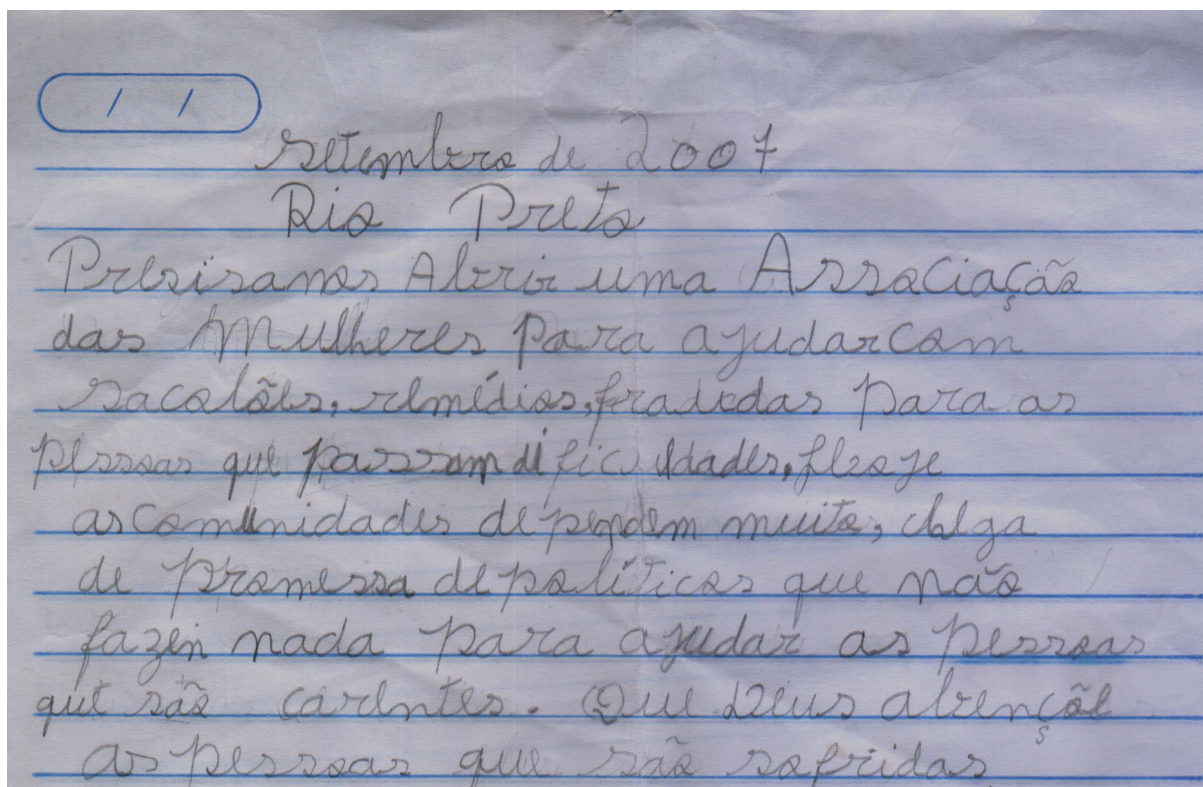 / /
Setembro de 2007
Rio Preto
Presisamos Abrir uma Associação
das Mulheres para ajudar com
sacolões, remédios, fraudas para as
pessoas que passam dificuldades,
as comunidades dependem muito, chega
de promessa de políticos que não
fazen nada para ajudar as pessoas
que são carentes. Que Deus abençõe
as pessoas que são sofridas